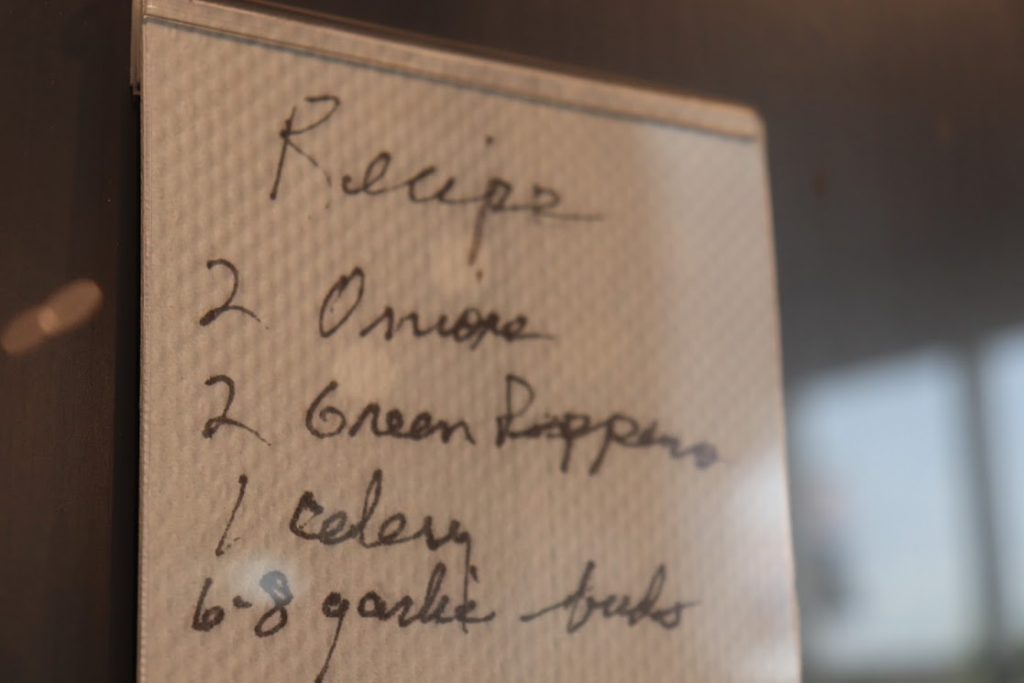 Recipe
2 Onions
2 Green Peppers
1 Celery
6-8 garlic buds